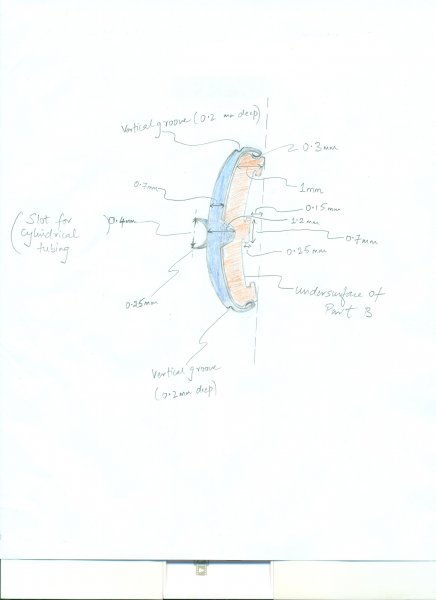 Vertical groove (0.2 mm deep)
0.3mm
1mm
0.7mm
0.15mm
1.2mm
(Slot for
cylindrical
tubing
)0.4mm
0.7mm
0.25mm
0.25mm
undersurface of
Part 3
Vertical groove
(0.2mm deep)